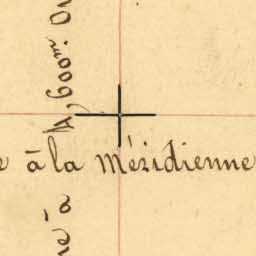 à la Méridienne
4,600m. O
à